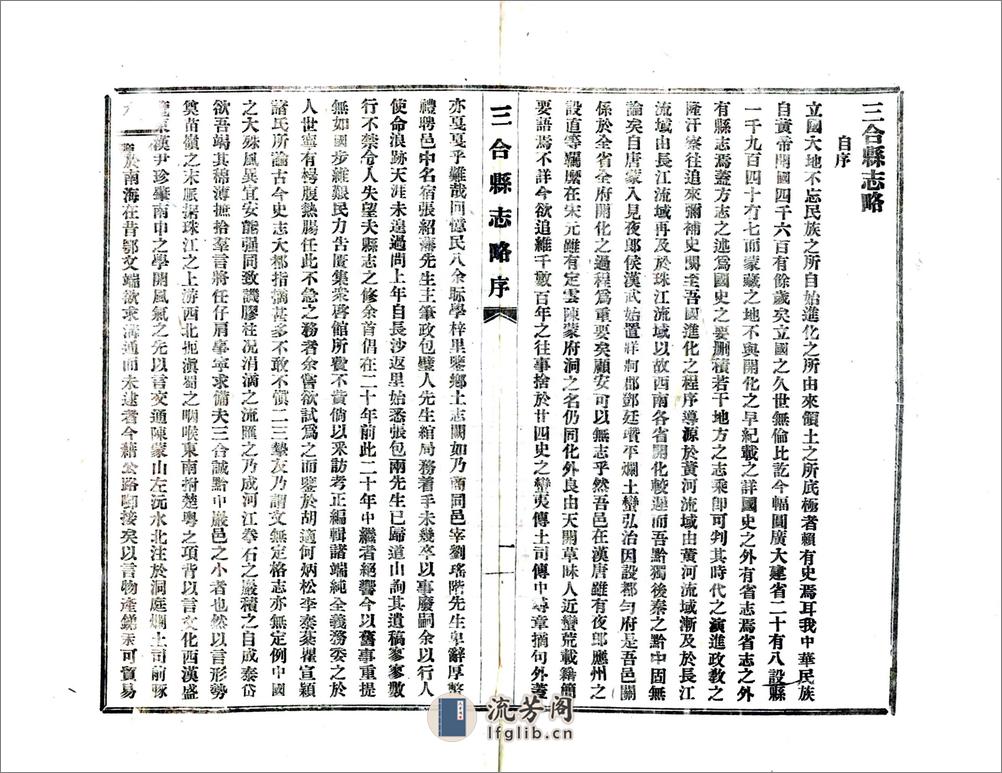 三合縣志略
自序
立國大地不忘民族之所自始進化之所由來領土之所底極者賴有史焉耳我中華民族
自黃帝開國四千六百有餘歲矣立國之久世無倫比訖今幅圓廣大建省二十有八設縣
一千九百四十有七而蒙藏之地不與開化之早紀載之詳國史之外有省志焉省志之外
有縣志焉蓋方志之述爲國史之要刪積若干地方之志乘卽可判其時代之演進政教之
隆汙察往追來彌補史闕至吾國進化之程序導源於黃河流域由黃河流域漸及於長江
流域由長江流域再及於珠江流域以故西南各省開化較遲而吾黔獨後秦之黔中固無
論矣自唐蒙入見夜郎侯漢武始置牂牁郡鄧廷瓚平爛土蠻弘治因設都勻府是吾邑關
係於全省全府開化之過程爲重要矣顧安可以無志乎然吾邑在漢唐雖有夜郎應州之
設道等羈縻在宋元雖有定雲陳蒙府洞之名仍同化外良由天開草昧人近蠻荒載籍簡
要語焉不詳今欲追維千數百年之往事捨於廿四史之蠻夷傳土司傳中尋章摘句外蓋
三合縣志略序
一
亦戛戛乎難哉回憶民八余眎學梓里鑒鄉土志闕如乃商同邑宰劉瑤階先生卑辭厚幣
禮聘邑中名宿張紹藩先生主筆政包璧人先生綰局務着手未幾卒以事廢嗣余以行人
使命浪跡天涯未遑過問上年自長沙返里始悉張包兩先生已歸道山詢其遺稿寥寥數
行不禁令人失望夫縣志之修余首倡在二十年前此二十年中繼者絕響今以舊事重提
無如國步維艱民力告匱集衆啓館所費不貲倘以釆訪考正編輯諸端純全義務委之於
人世寧有枵腹熱腸任此不急之務者余嘗欲試爲之而鑒於胡適何炳松李泰棻瞿宣穎
諸氏所論古今史志大都指摘甚多不敢不愼二三摯友乃謂文無定格志亦無定例中國
之大殊風異宜安能强同致譏膠柱况涓滴之流匯之乃成河江拳石之巖積之自成泰岱
欲吾竭其綿薄摭拾羣言將任仔肩辜寧求備夫三合誠黔中巖邑之小者也然以言形勢
奠苗嶺之末脈據珠江之上游西北扼滇蜀之咽喉東南捬楚粵之項背以言文化西漢盛
東漢尹珍肇南中之學開風氣之先以言交通陳蒙山左沅水北注於洞庭爛土司前豚
於南海在昔鄂文端欲求溝通而未逮者今藉公路啣接矣以言物產銻汞可貿易
流芳閣
lfglib.cn